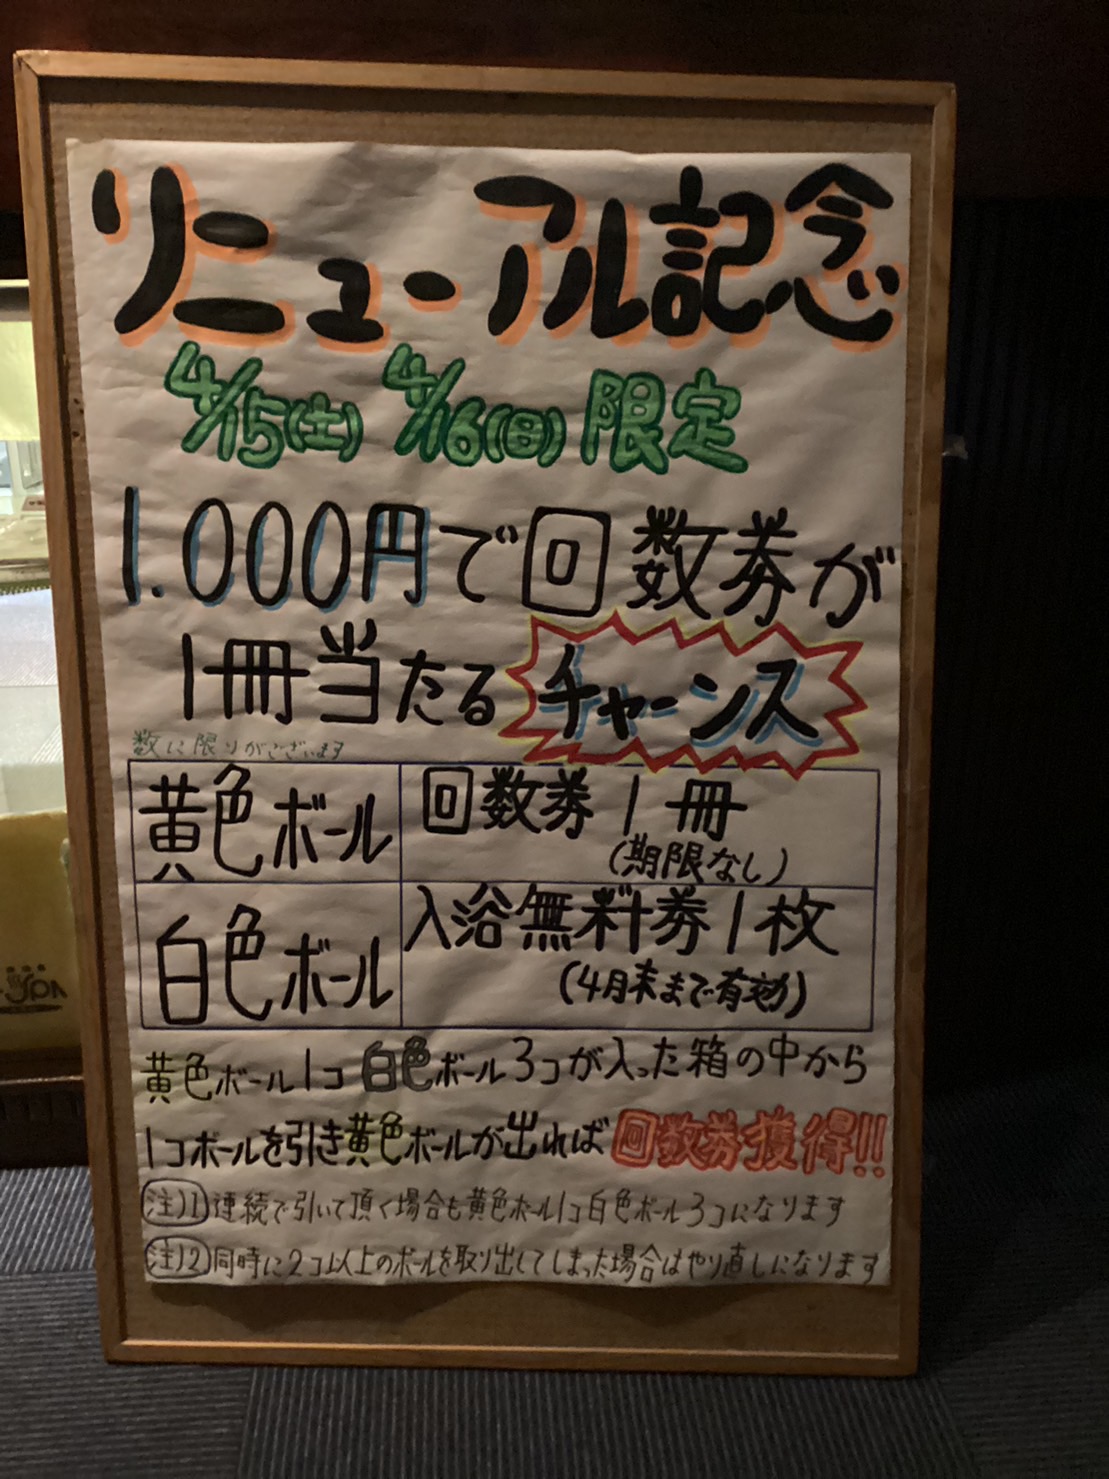 リニューアル記念
4/15(土) 4/16(日)限定
1.000円で回数券が
1冊当たるチャンス
数に限りがございます
黄色ボール 回数券1冊
(期限なし)
白色ボール 入浴無料券1枚
(4月末まで有効)
黄色ボール1コ 白色ボール3コが入った箱の中から
1コボールを引き黄色ボールが出れば回数券獲得!!
注)1 連続で引いて頂く場合も黄色ボール1コ白色ボール3コになります
注)2 同時に2コ以上のボールを取り出してしまった場合はやり直しになります